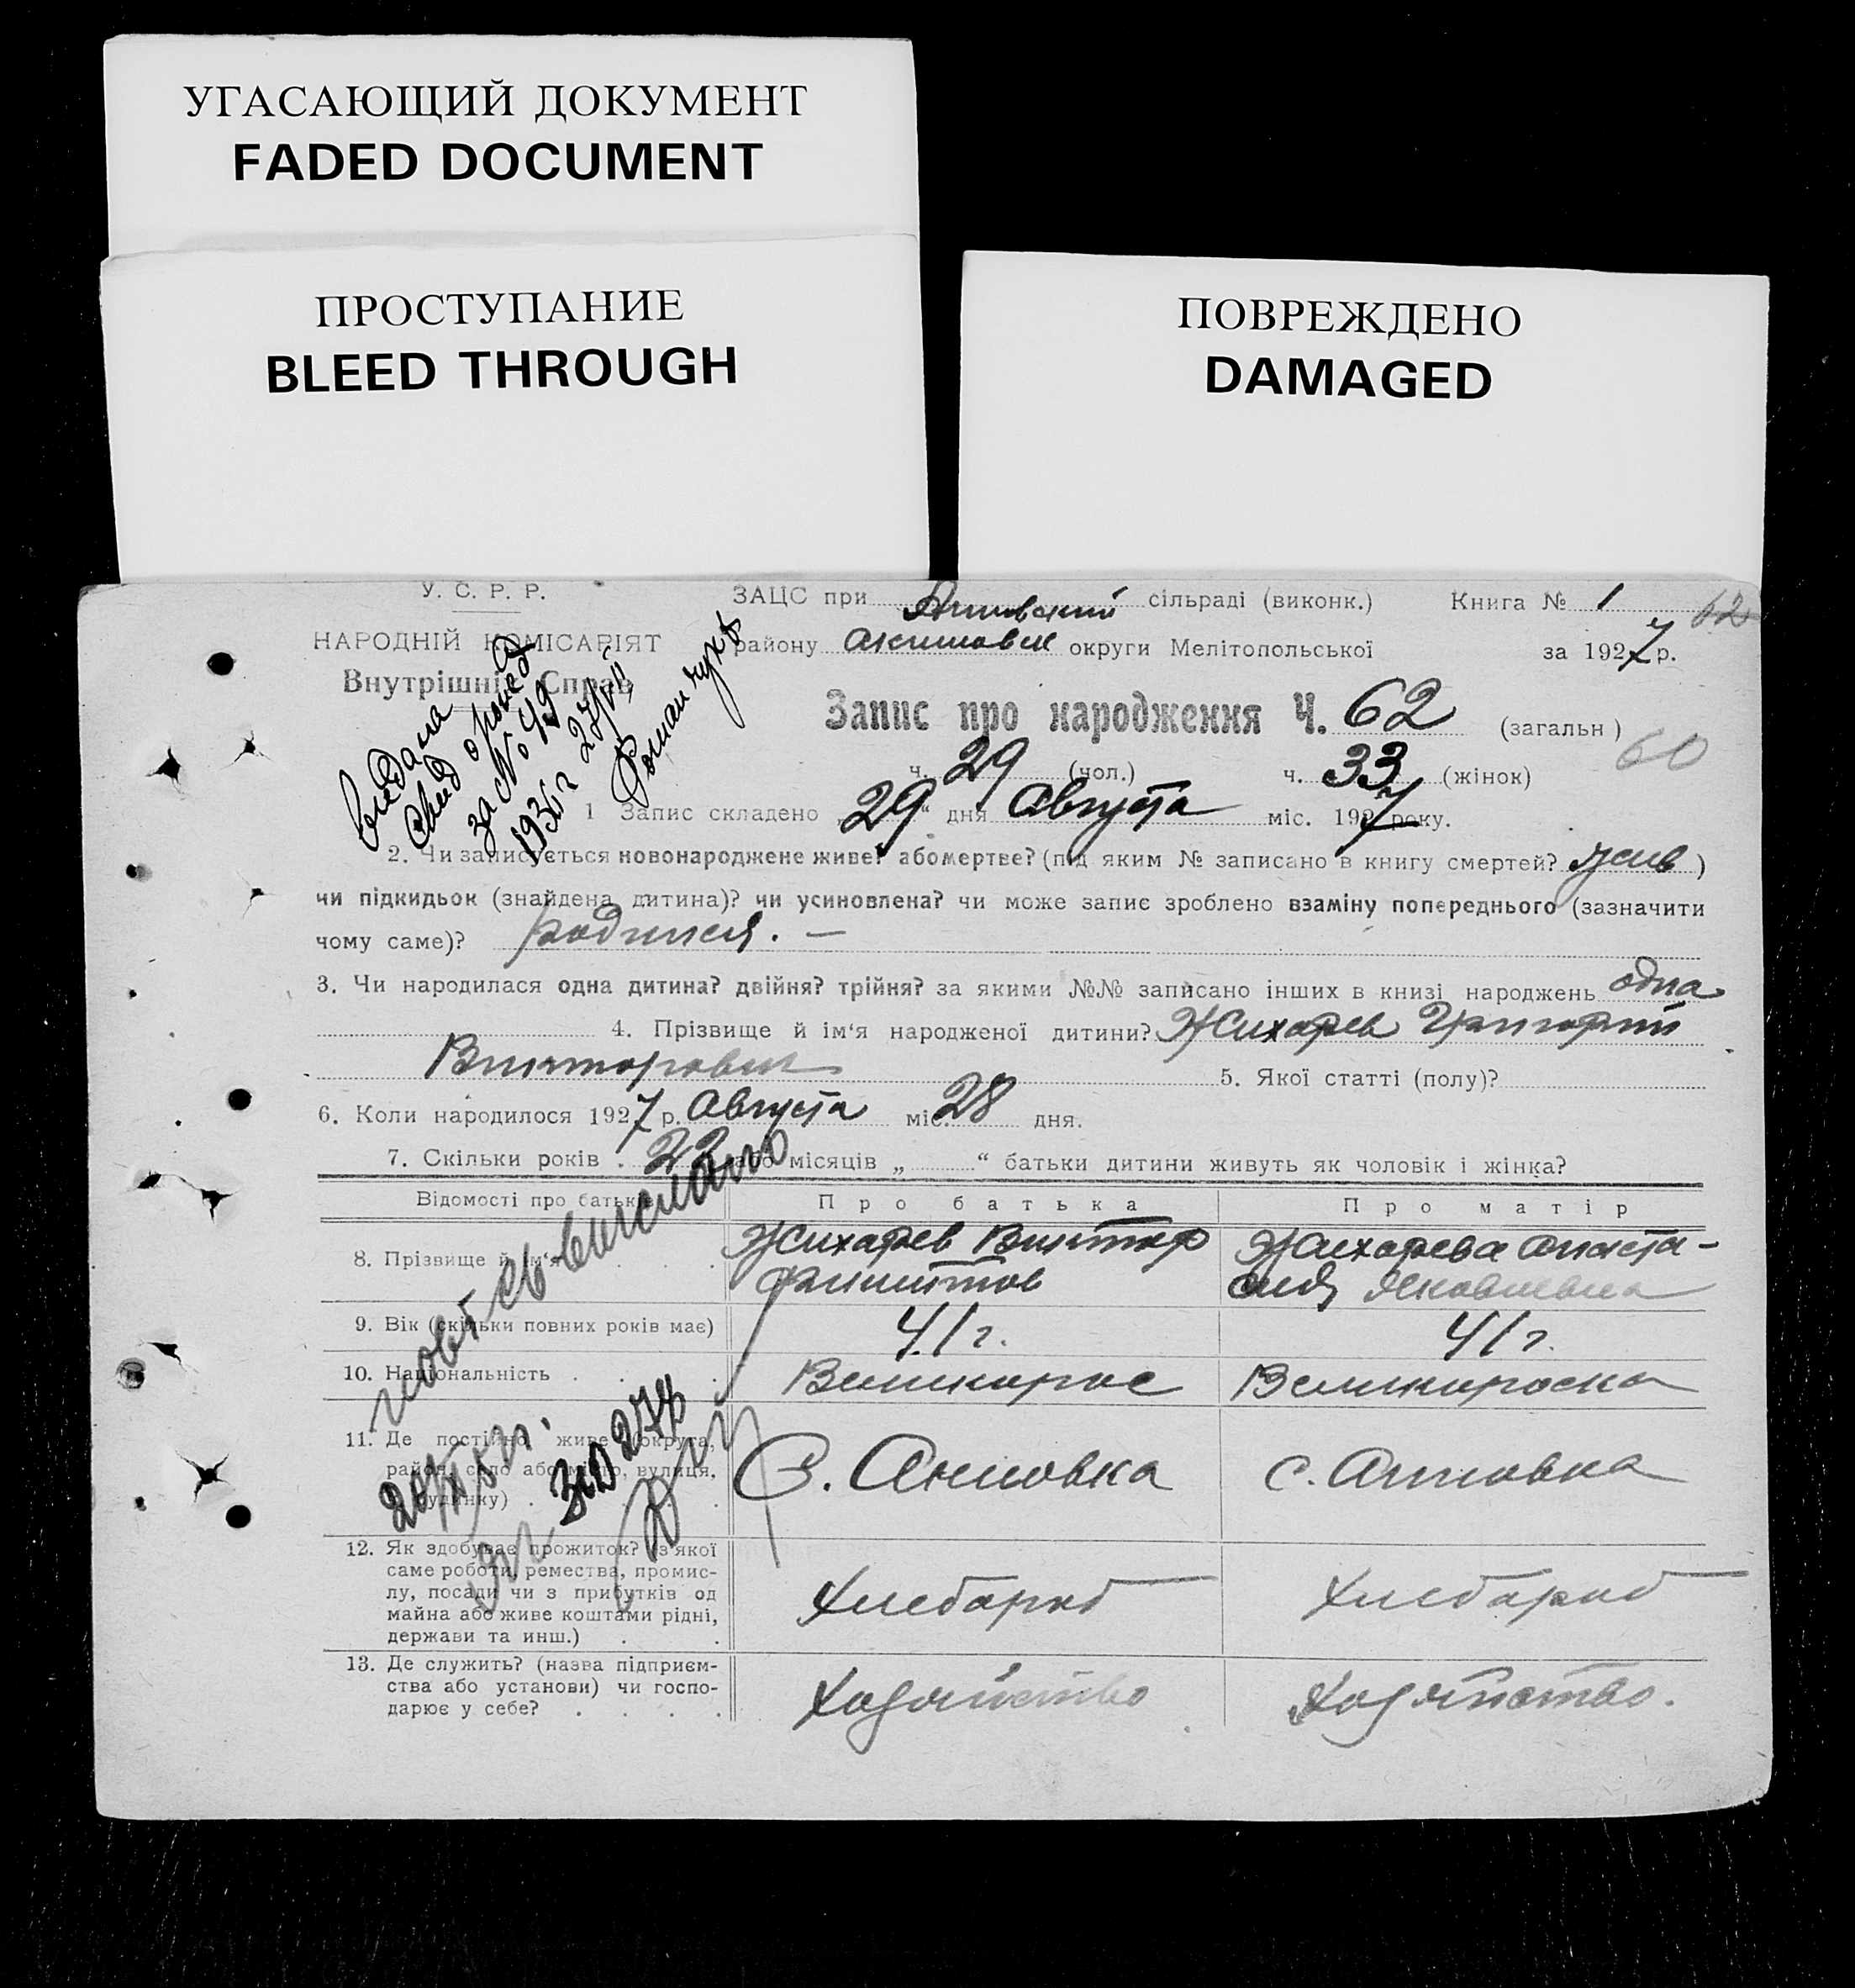 УГАСАЮЩИЙ ДОКУМЕНТ
FADED DOCUMENT
ПРОСТУПАНИЕ
BLEED THROUGH
ПОВРЕЖДЕНО
DAMAGED
У. С. Р. Р.
НАРОДНІЙ КОМІСАРІЯТ
Внутрішніх Справ
ЗАЦС при сільраді (виконк.) Книга № 1 62
району округи Мелітопольської за 1927 р.
Запис про народження Ч. 62 (загальн)
60
ч. 29 (чол.) ч. 33 (жінок)
Видана
свид о рожед
за № 49
1936 г 27/VII
1 Запис складено „29“ дня Августа міс. 1927 року.
2. Чи записується новонароджене живе? або мертве? (під яким № записано в книгу смертей? жив)
чи підкидьок (знайдена дитина)? чи усиновлена? чи може запис зроблено взаміну попереднього (зазначити
чому саме)? родился. —
3. Чи народилася одна дитина? двійня? трійня? за якими №№ записано інших в книзі народжень одна
4. Прізвище й ім‘я народженої дитини? Жихарев Григорий
Викторович
5. Якої статті (полу)?
6. Коли народилося 1927 р. Августа міс. 28 дня.
7. Скільки років 22 або місяців „ “ батьки дитини живуть як чоловік і жінка?
Відомості про батьків Про батька Про матір
8. Прізвище й ім‘я Жихарев Виктор Жихарева Анаста-
сия Яковлевна
9. Вік (скільки повних років має) 41 г. 41 г.
10. Національність Великорос Великороска
11. Де постійно живе (округа,
район, село або місто, вулиця,
будинку)
С. Анновка с. Анновка
12. Як здобуває прожиток? (з якої
саме роботи, ремества, промис-
лу, посади чи з прибутків од
майна або живе коштами рідні,
держави та инш.)
Хлебороб Хлебороб
13. Де служить? (назва підприєм-
ства або установи) чи госпо-
дарює у себе?
Хозяйство Хозяйство.